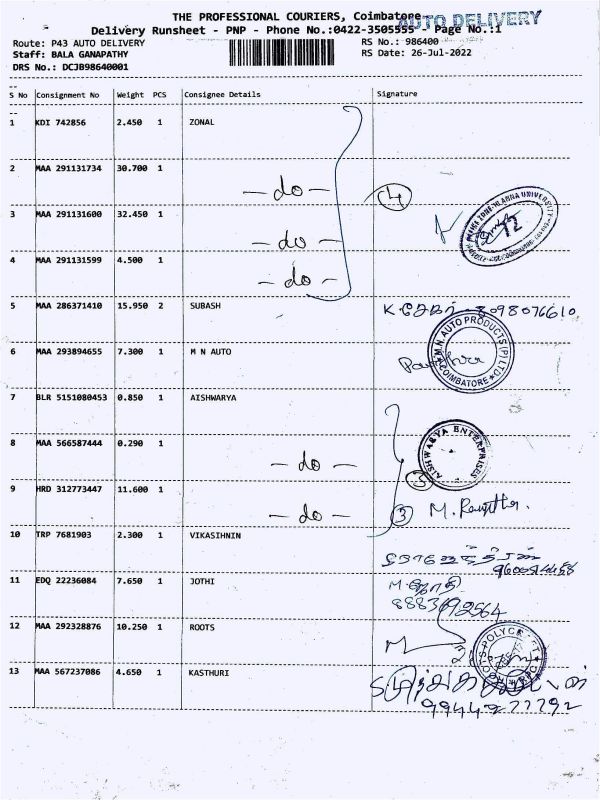 THE PROFESSIONAL COURIERS, Coimbatore
AUTO DELIVERY
Delivery Runsheet - PNP - Phone No.:0422-3505555 - Page No.:1
Route: P43 AUTO DELIVERY RS No.: 986400
Staff: BALA GANAPATHY RS Date: 26-Jul-2022
DRS No.: DCJB98640001
S No Consignment No Weight PCS Consignee Details Signature
1 KDI 742856 2.450 1 ZONAL
2 MAA 291131734 30.700 1
- do - 4
3 MAA 291131600 32.450 1
- do -
4 MAA 291131599 4.500 1
- do -
5 MAA 286371410 15.950 2 SUBASH
K. சேகர் 8098076610
6 MAA 293894655 7.300 1 M N AUTO
M.N. AUTO PRODUCTS (P) LTD. COIMBATORE
7 BLR 5151080453 0.850 1 AISHWARYA
AISHWARYA ENTERPRISES
8 MAA 566587444 0.290 1
- do - 3
9 HRD 312773447 11.600 1
- do - 3
10 TRP 7681903 2.300 1 VIKASIHNIN
11 EDQ 22236084 7.650 1 JOTHI
M. ஜோதி
8883692564
12 MAA 292328876 10.250 1 ROOTS
13 MAA 567237086 4.650 1 KASTHURI